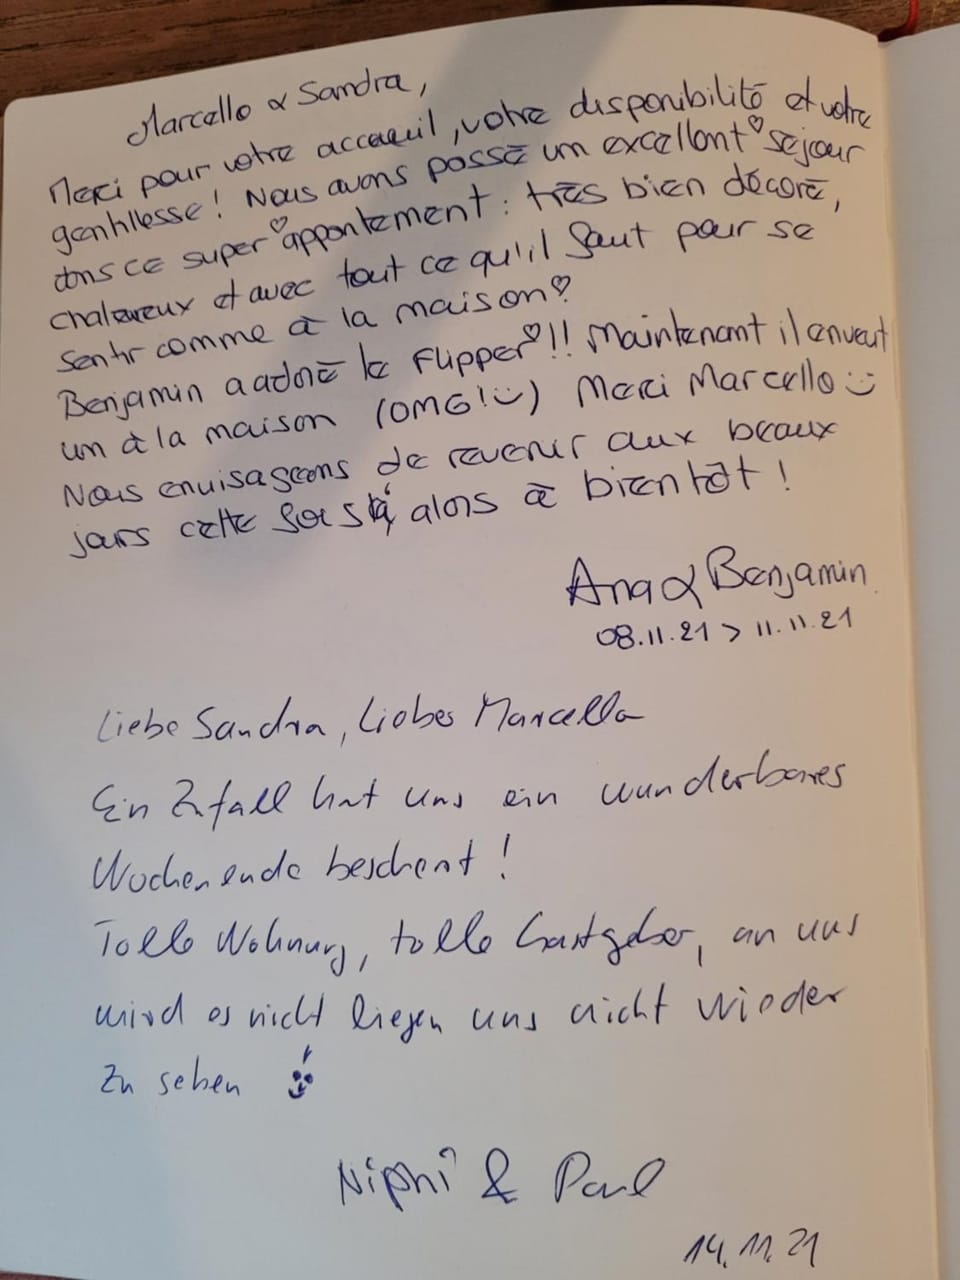 Marcello & Sandra,
Merci pour votre accueuil, votre disponibilité et votre
gentillesse! Nous avons passé un excellent séjour
dns ce super appartement: très bien décoré,
chaleureux et avec tout ce qu'il faut pour se
sentir comme à la maison♡
Benjamin a adoré le Flipper♡!! Maintenant il en veut
un à la maison (OMG!☺) Merci Marcello☺
Nous envisageons de revenir aux beaux
jours cette fois là, alors à bientôt!
Ana & Benjamin
08.11.21 > 11.11.21
Liebe Sandra, Liebes Marcello
Ein Zufall hat uns ein wunderbares
Wochenende beschent!
Tolle Wohnung, tolle Gastgeber, an uns
wird es nicht liegen uns nicht wieder
zu sehen
Niphi & Paul
14.11.21